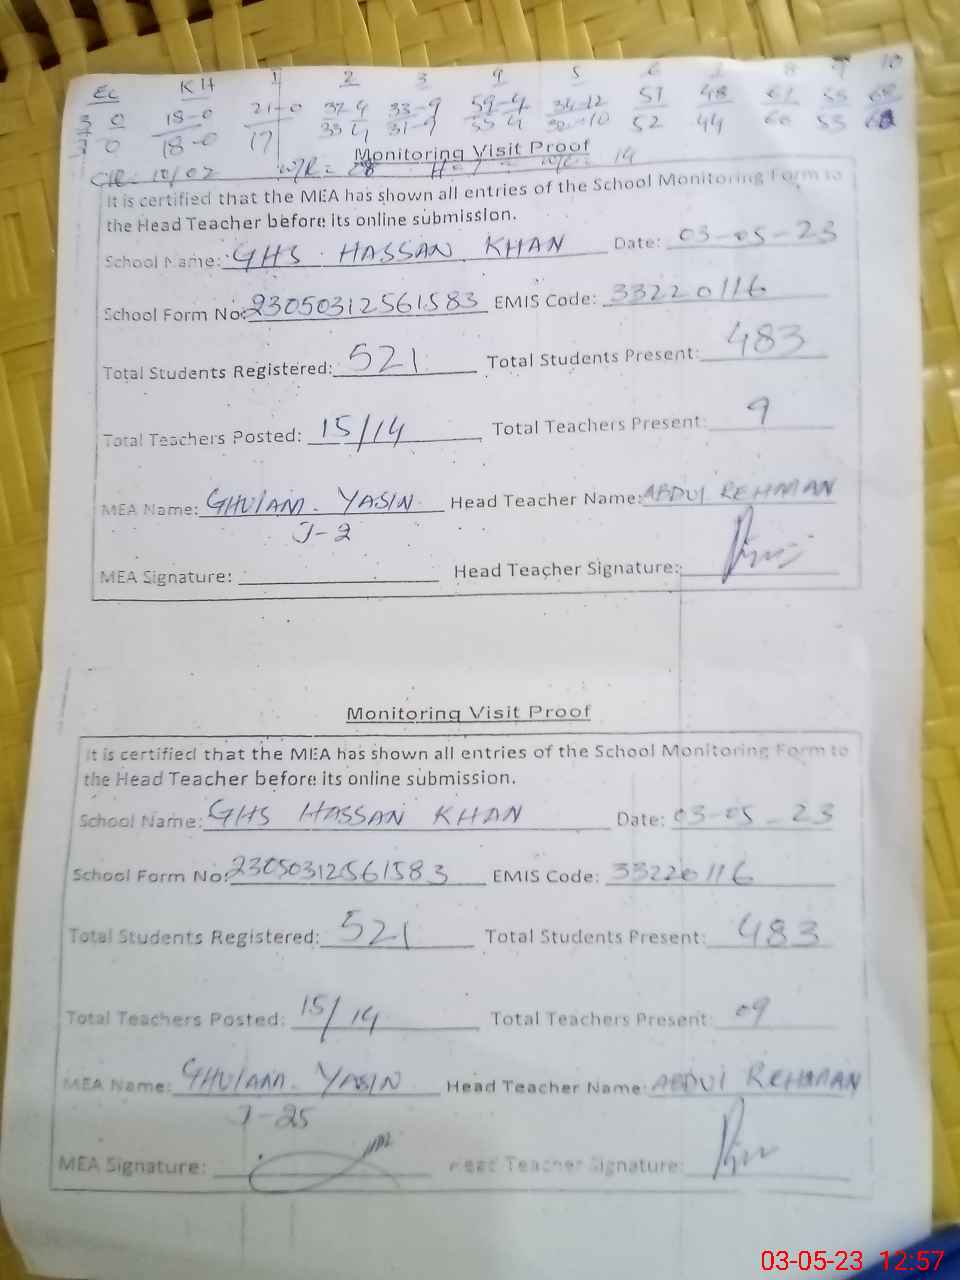 Ec KH 1 2 3 4 5 6 7 8 9 10
3 0 18-0 21-0 37-4 33-9 59-4 34-12 51 48 61 55
3 0 18-0 17 33 4 31-9 55 4 30-10 52 44 60 53
Monitoring Visit Proof
W/R = 14
It is certified that the MEA has shown all entries of the School Monitoring Form to
the Head Teacher before its online submission.
School Name: GHS HASSAN KHAN Date: 03-05-23
School Form No: 23050312561583 EMIS Code: 33220116
Total Students Registered: 521 Total Students Present: 483
Total Teachers Posted: 15/14 Total Teachers Present: 9
MEA Name: GHULAM YASIN Head Teacher Name: ABDUL REHMAN
J-2
MEA Signature: Head Teacher Signature:
Monitoring Visit Proof
It is certified that the MEA has shown all entries of the School Monitoring Form to
the Head Teacher before its online submission.
School Name: GHS HASSAN KHAN Date: 03-05-23
School Form No: 23050312561583 EMIS Code: 33220116
Total Students Registered: 521 Total Students Present: 483
Total Teachers Posted: 15/14 Total Teachers Present: 09
MEA Name: GHULAM YASIN Head Teacher Name: ABDUL REHMAN
J-25
MEA Signature: Head Teacher Signature:
03-05-23 12:57